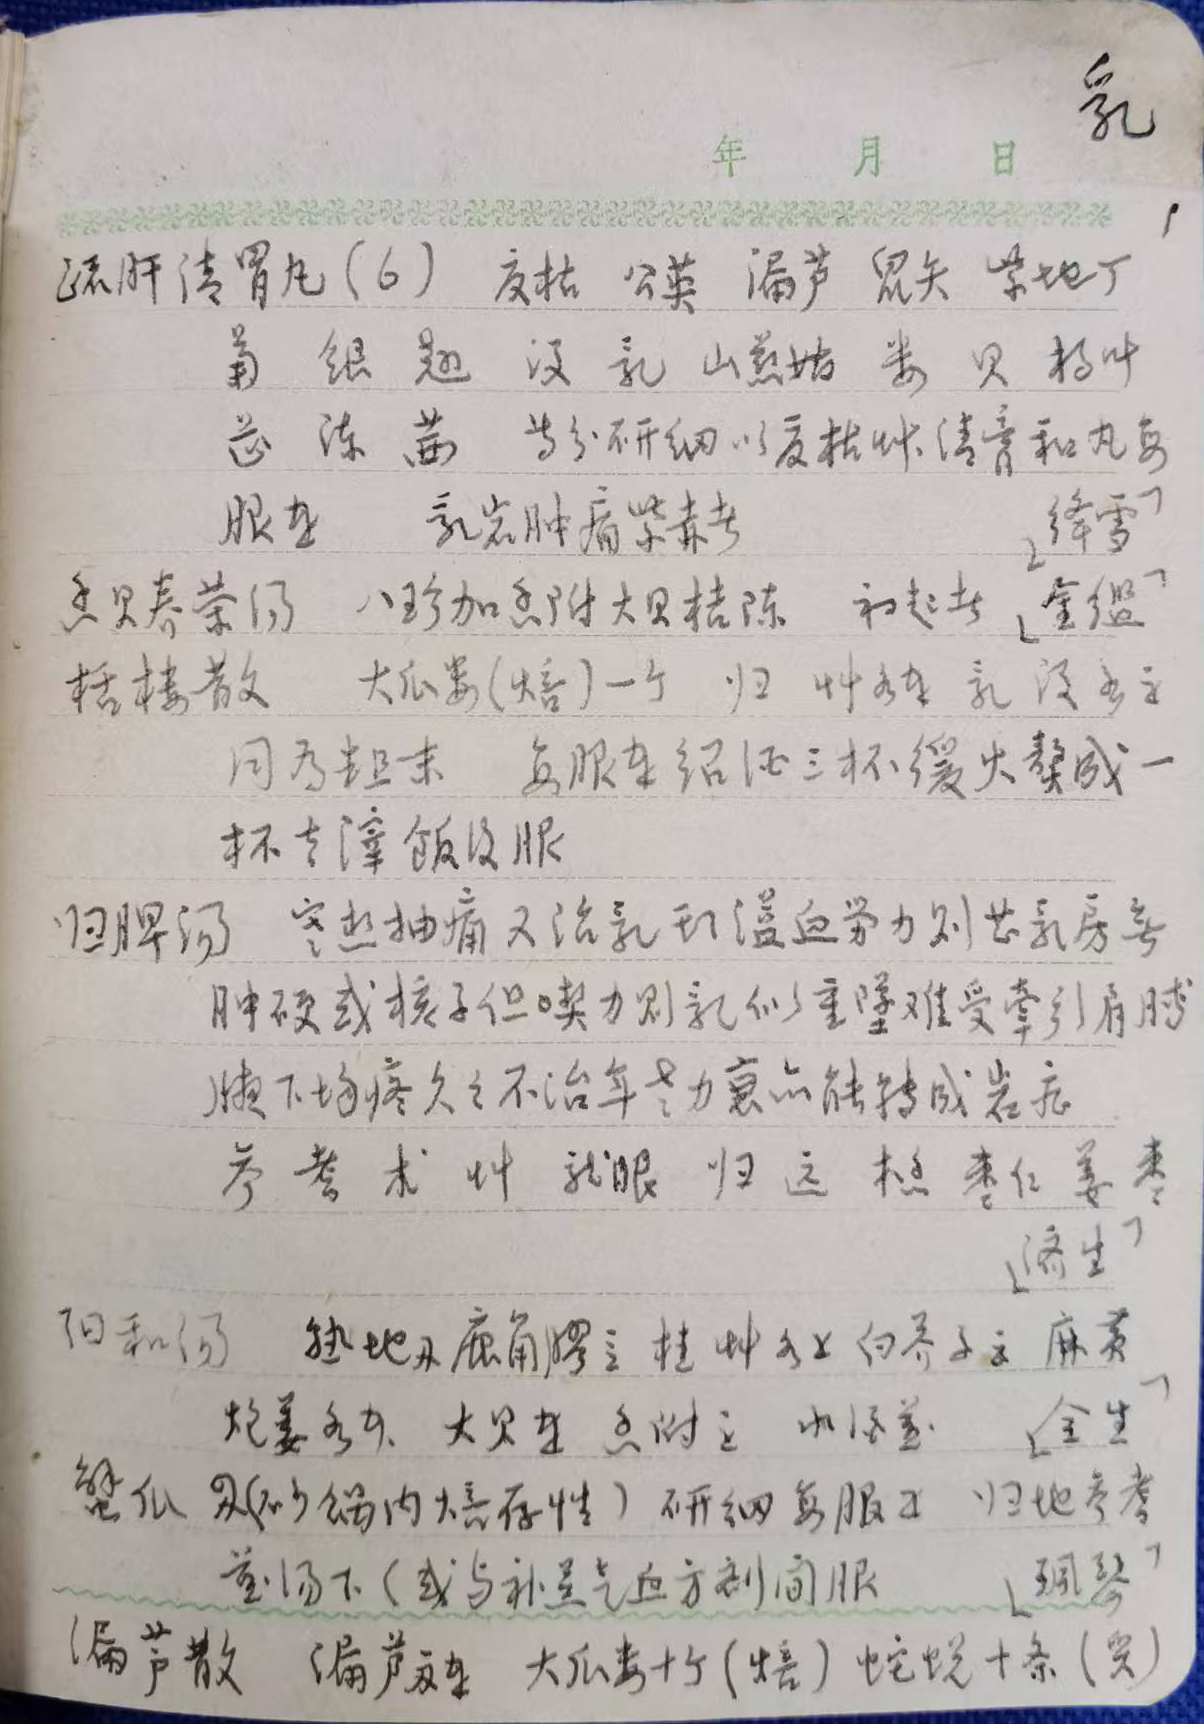 乳
年 月 日
1
疏肝清胃丸(6) 夏枯 公英 漏芦 鼠矢 紫地丁
菊 银 翘 没 乳 山慈姑 娄 贝 叶
芷 陈 茜 等分研细以夏枯草清膏和丸每
服 乳岩肿痛紫赤者 「绛雪」
香贝养荣汤 八珍加香附大贝桔陈 初起者 「金鑑」
栝楼散 大瓜娄(焙)一个 归 草各 乳 没各
同为粗末 每服 绍酒三杯缓火熬成一
杯去滓饭后服
归脾汤 寒热抽痛又治乳 溢血劳力则 乳房无
肿硬或核子但喫力则乳似重坠难受牵引肩膊
腋下均疼久之不治年老力衰亦能转成岩症
参 耆 术 草 龙眼 归 远 木香 枣仁 姜 枣
「济生」
阳和汤 熟地 鹿角膠 桂 草各 白芥子 麻黄
炮姜各 大贝 香附 水酒煎 「全生」
蟹爪 (砂锅内焙存性) 研细每服 归地参耆
煎汤下(或与补益气血方剂间服 「珮琴」
漏芦散 漏芦 大瓜娄十个(焙) 蛇蜕十条(炙)